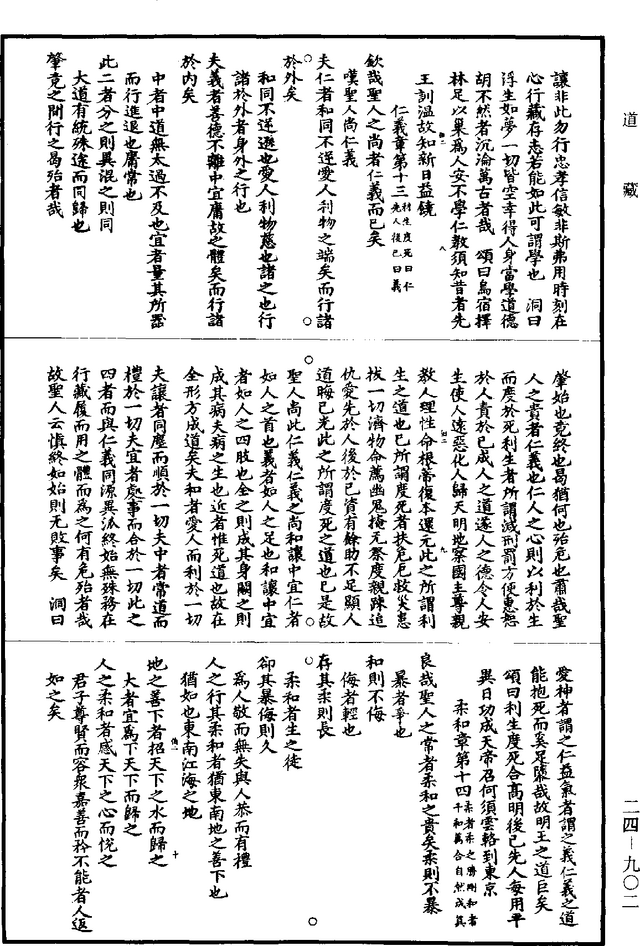 道藏
讓非此勿行忠孝信敏非斯弗用時刻在
心行藏存志若能如此可謂學也　洞曰
浮生如夢一切皆空幸得人身當學道德
胡不然者沉淪萬古者哉　頌曰烏宿擇
林足以巢為人安不學仁教須知昔者先
王訓溫故知新日益鏡
仁義章第十三　利生度死曰仁先人後己曰義
欽哉聖人之尚者仁義而已矣
嘆聖人尚仁義
夫仁者和同不逆愛人利物之端矣而行諸
於外矣
和同不逆遜也愛人利物慈也諸之也行
諸於外者身外之行也
夫義者善德不離中宜庸故之體矣而行諸
於內矣
中者中道無太過不及也宜者量其所器
而行進退也庸常也
此二者分之則異混之則同
大道有統殊途而同歸也
肇竟之間行之曷殆者哉
肇始也竟終也曷猶何也殆危也肅哉聖
人之貴者仁義也仁人之心則以利於生
而度於死利生者所謂減刑罰方便惠恕
於人貴於己成人之道遂人之德令人安
生使人遠惡化人歸天明地察國主尊親
教人理性命根帝復本還元此之所謂利
生之道也已所謂度死者扶危厄救災患
拔一切濟物命薦幽冤掩元祭度親踈追
仇愛先於人後於己資有餘助不足顯人
道晦己光此之所謂度死之道也已是故
聖人尚此仁義仁義之尚和讓中宜仁者
如人之首也義者如人之足也和讓中宜
者如人之四肢也全之則成其身闕之則
成其病夫病之生也近者惟死道也故在
全形方成道矣夫和者愛人而利於一切
夫讓者同塵而順於一切夫中者常道而
禮於一切夫宜者處事而合於一切此之
四者而與仁義同源異派終始無殊務在
行藏履而用之體而為之何有危殆者哉
故聖人云慎終如始則无敗事矣　洞曰
愛神者謂之仁益氣者謂之義仁義之道
能抱死而奚足隳哉故明王之道巨矣
頌曰利生度死合高明後己先人每用平
異日功成天帝召何須雲輅到東京
柔和章第十四　柔者柔之勝剛和者千和萬合自然成其
良哉聖人之常者柔和之貴矣柔則不暴
暴者爭也
和則不侮
侮者輕也
存其柔則長
柔和者生之徒
卻其暴侮則久
為人敬而無失與人恭而有禮
人之行其柔和者猶東南地之善下也
猶如也東南江海之地
地之善下者招天下之水而歸之
大者宜為下天下而歸之
人之柔和者感天下之心而悅之
君子尊賢而容衆嘉善而矜不能者人返
如之矣
二四－九〇二